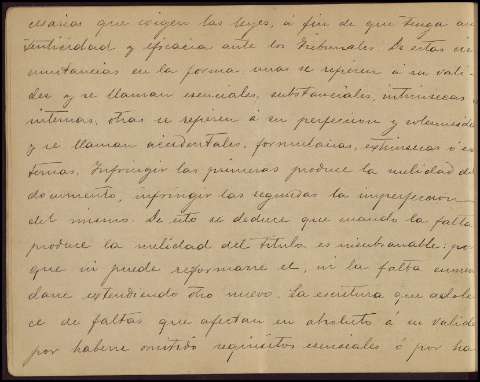 esarias que exigen las leyes, á fin de que tenga au
tenticidad y eficacia ante los Tribunales. De estas cir
cunstancias en la forma unas se refieren á su vali-
dez y se llaman esenciales, substanciales, intrínsecas é
internas, otras se refieren á su perfeccion y solemnidad
y se llaman accidentales, formularias, extrínsecas ó ex
ternas. Infringir las primeras produce la nulidad del
documento, infringir las segundas la imperfeccion
del mismo. De esto se deduce que cuando la falta
produce la nulidad del título es insubsanable: por
que ni puede reformarse el, ni la falta enmen
darse extendiendo otro nuevo. La escritura que adole
ce de faltas que afectan en absoluto á su valide
por haberse omitido requisitos esenciales ó por ha